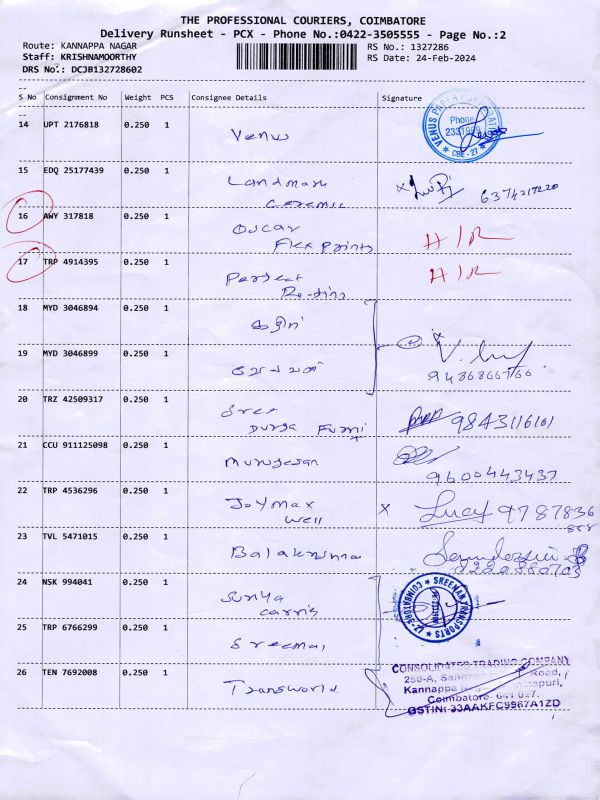 THE PROFESSIONAL COURIERS, COIMBATORE
Delivery Runsheet - PCX - Phone No.:0422-3505555 - Page No.:2
Route: KANNAPPA NAGAR
RS No.: 1327286
Staff: KRISHNAMOORTHY
RS Date: 24-Feb-2024
DRS No.: DCJB132728602
S No Consignment No Weight PCS Consignee Details Signature
14 UPT 2176818 0.250 1 Venus
VENUS PAPER
Phone
CBE - 27
15 EDQ 25177439 0.250 1 Landmark
Ceramic
6374217220
16 AWY 317818 0.250 1 Oscar
Flex Prints
17 TRP 4914395 0.250 1 Perfect
18 MYD 3046894 0.250 1
19 MYD 3046899 0.250 1
20 TRZ 42509317 0.250 1 Sree
Durga Furni
9843116101
21 CCU 911125098 0.250 1 Murugesan
9600443437
22 TRP 4536296 0.250 1 Joymax
Well
X Lucy 9787836
888
23 TVL 5471015 0.250 1 Balakrishna
24 NSK 994041 0.250 1 Surya
SREEMAN TRANSPORTS
COIMBATORE-27
25 TRP 6766299 0.250 1
26 TEN 7692008 0.250 1 Transworld
CONSOLIDATED TRADING COMPANY
250-A, Road,
Kannappa
Coimbatore. 641 027.
GSTIN: 33AAKFC9967A1ZD